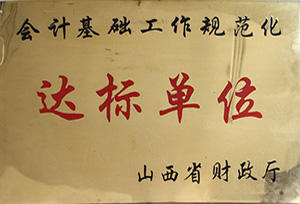 会计基础工作规范化
达标单位
山西省财政厅